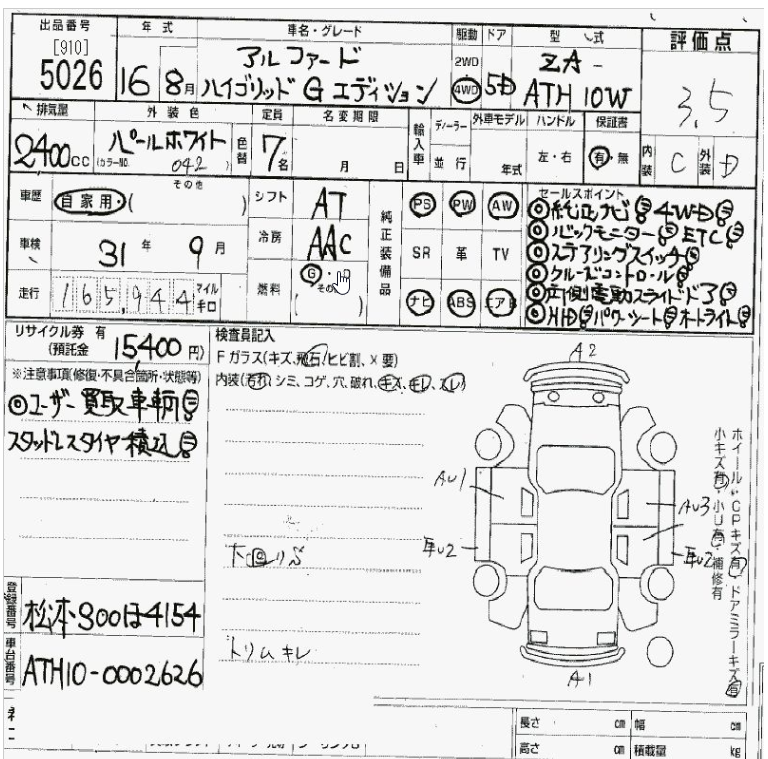 出品番号 年式 車名・グレード 駆動 ドア 型式 評価点
[910]
5026 16 8月 アルファード ハイブリッド G エディション 2WD 4WD 5D ZA- ATH10W 3.5
排気量 外装色 定員 名変期限 輸入車 ディーラー 外車モデル ハンドル 保証書
2400cc パールホワイト (カラーNo. 042) 色替 7名 月 日 並行 年式 左・右 有・無 内装 C 外装 D
車歴 自家用・( その他 ) シフト AT
車検 31年 9月 冷房 AAC
走行 165,944 マイル キロ 燃料 G・その他( )
純正装備品 PS PW AW
SR 革 TV
ナビ ABS エアB
セールスポイント
◎純正ナビ㊂ 4WD㊂
◎バックモニター㊂ ETC㊂
◎ステアリングスイッチ㊂
◎クルーズコントロール㊂
◎両側電動スライドドア㊂
◎HID㊂パワーシート㊂オートライト㊂
リサイクル券 有
(預託金 15,400円)
※注意事項(修復・不具合箇所・状態等)
◎ユーザー買取車輌㊂
スタッドレスタイヤ積込㊂
検査員記入
Fガラス(キズ、飛石/ヒビ割、×要)
内装(汚れ、シミ、コゲ、穴、破れ、キズ、キレ、スレ)
下回りS
トリムキレ
A2
AU1
AU3
U2
U2
A1
ホイール・CPキズ有・ドアミラーキズ有
小キズ有・小U有・補修有
登録番号 松本300ほ4154
車台番号 ATH10-0002626
長さ cm 幅 cm
高さ cm 積載量 kg